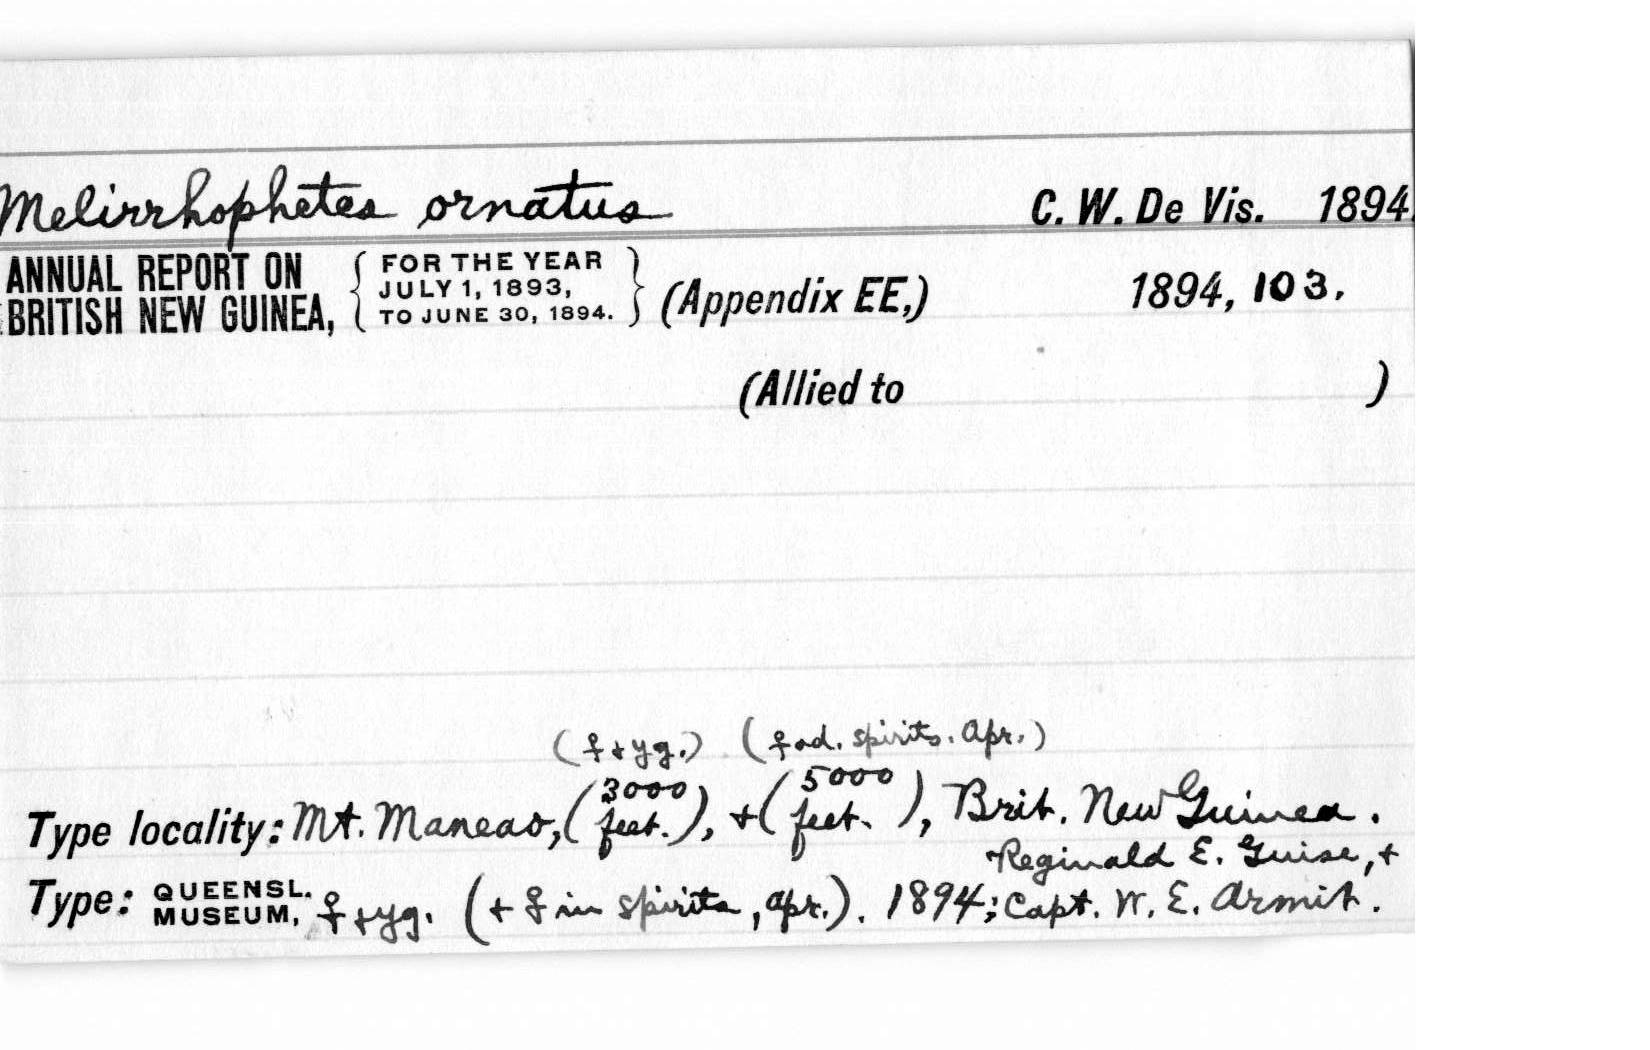 Melirrhophetes ornatus C. W. De Vis. 1894.
ANNUAL REPORT ON BRITISH NEW GUINEA, { FOR THE YEAR JULY 1, 1893, TO JUNE 30, 1894. } (Appendix EE,) 1894, 103.
(Allied to )
(♀ + yg.) (♀ ad. spirits. Apr.)
Type locality: Mt. Maneao, (3000 feet.), + (5000 feet.), Brit. New Guinea.
Reginald E. Guise, +
Type: QUEENSL. MUSEUM, ♀ + yg. (+ ♀ in spirits, Apr.). 1894; Capt. W. E. Armit.